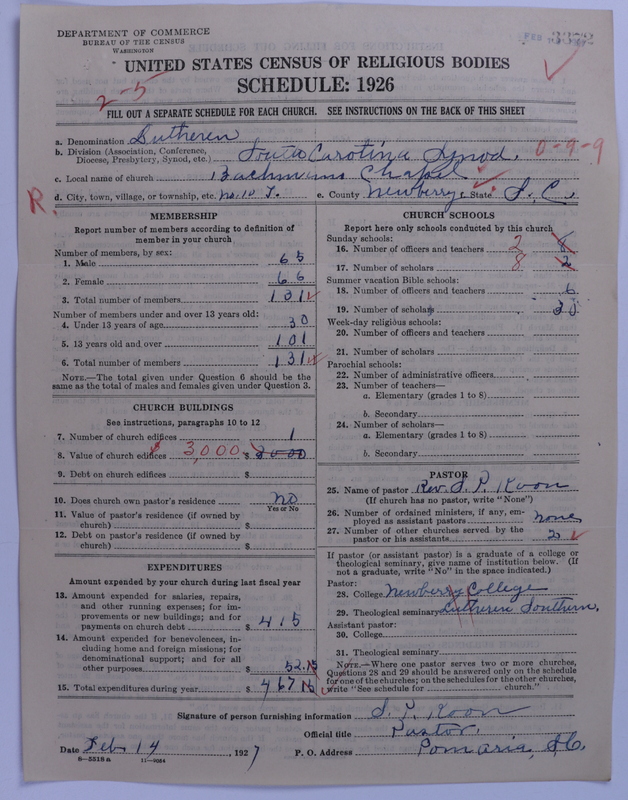 DEPARTMENT OF COMMERCE
BUREAU OF THE CENSUS
WASHINGTON
FEB 3372
UNITED STATES CENSUS OF RELIGIOUS BODIES
SCHEDULE: 1926
2-5
FILL OUT A SEPARATE SCHEDULE FOR EACH CHURCH. SEE INSTRUCTIONS ON THE BACK OF THIS SHEET
a. Denomination Lutheren
b. Division (Association, Conference, Diocese, Presbytery, Synod, etc.) South Carolina Synod. 0-9-9
c. Local name of church Bachmans Chapel
d. City, town, village, or township, etc. No. 10 T. e. County Newberry State S. C.
R.
MEMBERSHIP
Report number of members according to definition of
member in your church
Number of members, by sex:
1. Male 65
2. Female 66
3. Total number of members 131
Number of members under and over 13 years old:
4. Under 13 years of age 30
5. 13 years old and over 101
6. Total number of members 131
NOTE.—The total given under Question 6 should be the
same as the total of males and females given under Question 3.
CHURCH BUILDINGS
See instructions, paragraphs 10 to 12
7. Number of church edifices 1
8. Value of church edifices $3,000 $ 3000
9. Debt on church edifices $
10. Does church own pastor's residence No
Yes or No
11. Value of pastor's residence (if owned by
church) $
12. Debt on pastor's residence (if owned by
church) $
EXPENDITURES
Amount expended by your church during last fiscal year
13. Amount expended for salaries, repairs,
and other running expenses; for im-
provements or new buildings; and for
payments on church debt $ 415
14. Amount expended for benevolences, in-
cluding home and foreign missions; for
denominational support; and for all
other purposes $ 52.15
15. Total expenditures during year $ 467 15
CHURCH SCHOOLS
Report here only schools conducted by this church
Sunday schools:
16. Number of officers and teachers 2 8
17. Number of scholars 8 2
Summer vacation Bible schools:
18. Number of officers and teachers 6
19. Number of scholars 30
Week-day religious schools:
20. Number of officers and teachers
21. Number of scholars
Parochial schools:
22. Number of administrative officers
23. Number of teachers—
a. Elementary (grades 1 to 8)
b. Secondary
24. Number of scholars—
a. Elementary (grades 1 to 8)
b. Secondary
PASTOR
25. Name of pastor Rev. S. P. Koon
(If church has no pastor, write "None")
26. Number of ordained ministers, if any, em-
ployed as assistant pastors none
27. Number of other churches served by the
pastor or his assistants 2
If pastor (or assistant pastor) is a graduate of a college or
theological seminary, give name of institution below. (If
not a graduate, write "No" in the space indicated.)
Pastor:
28. College Newberry College
29. Theological seminary Lutheren Southern,
Assistant pastor:
30. College
31. Theological seminary
NOTE.—Where one pastor serves two or more churches,
Questions 28 and 29 should be answered only on the schedule
for one of the churches; on the schedules for the other churches,
write "See schedule for church."
Signature of person furnishing information S. P. Koon
Official title Pastor,
Date Feb 14 , 1927 P. O. Address Pomaria, S.C.
8-5518 a 11-9064